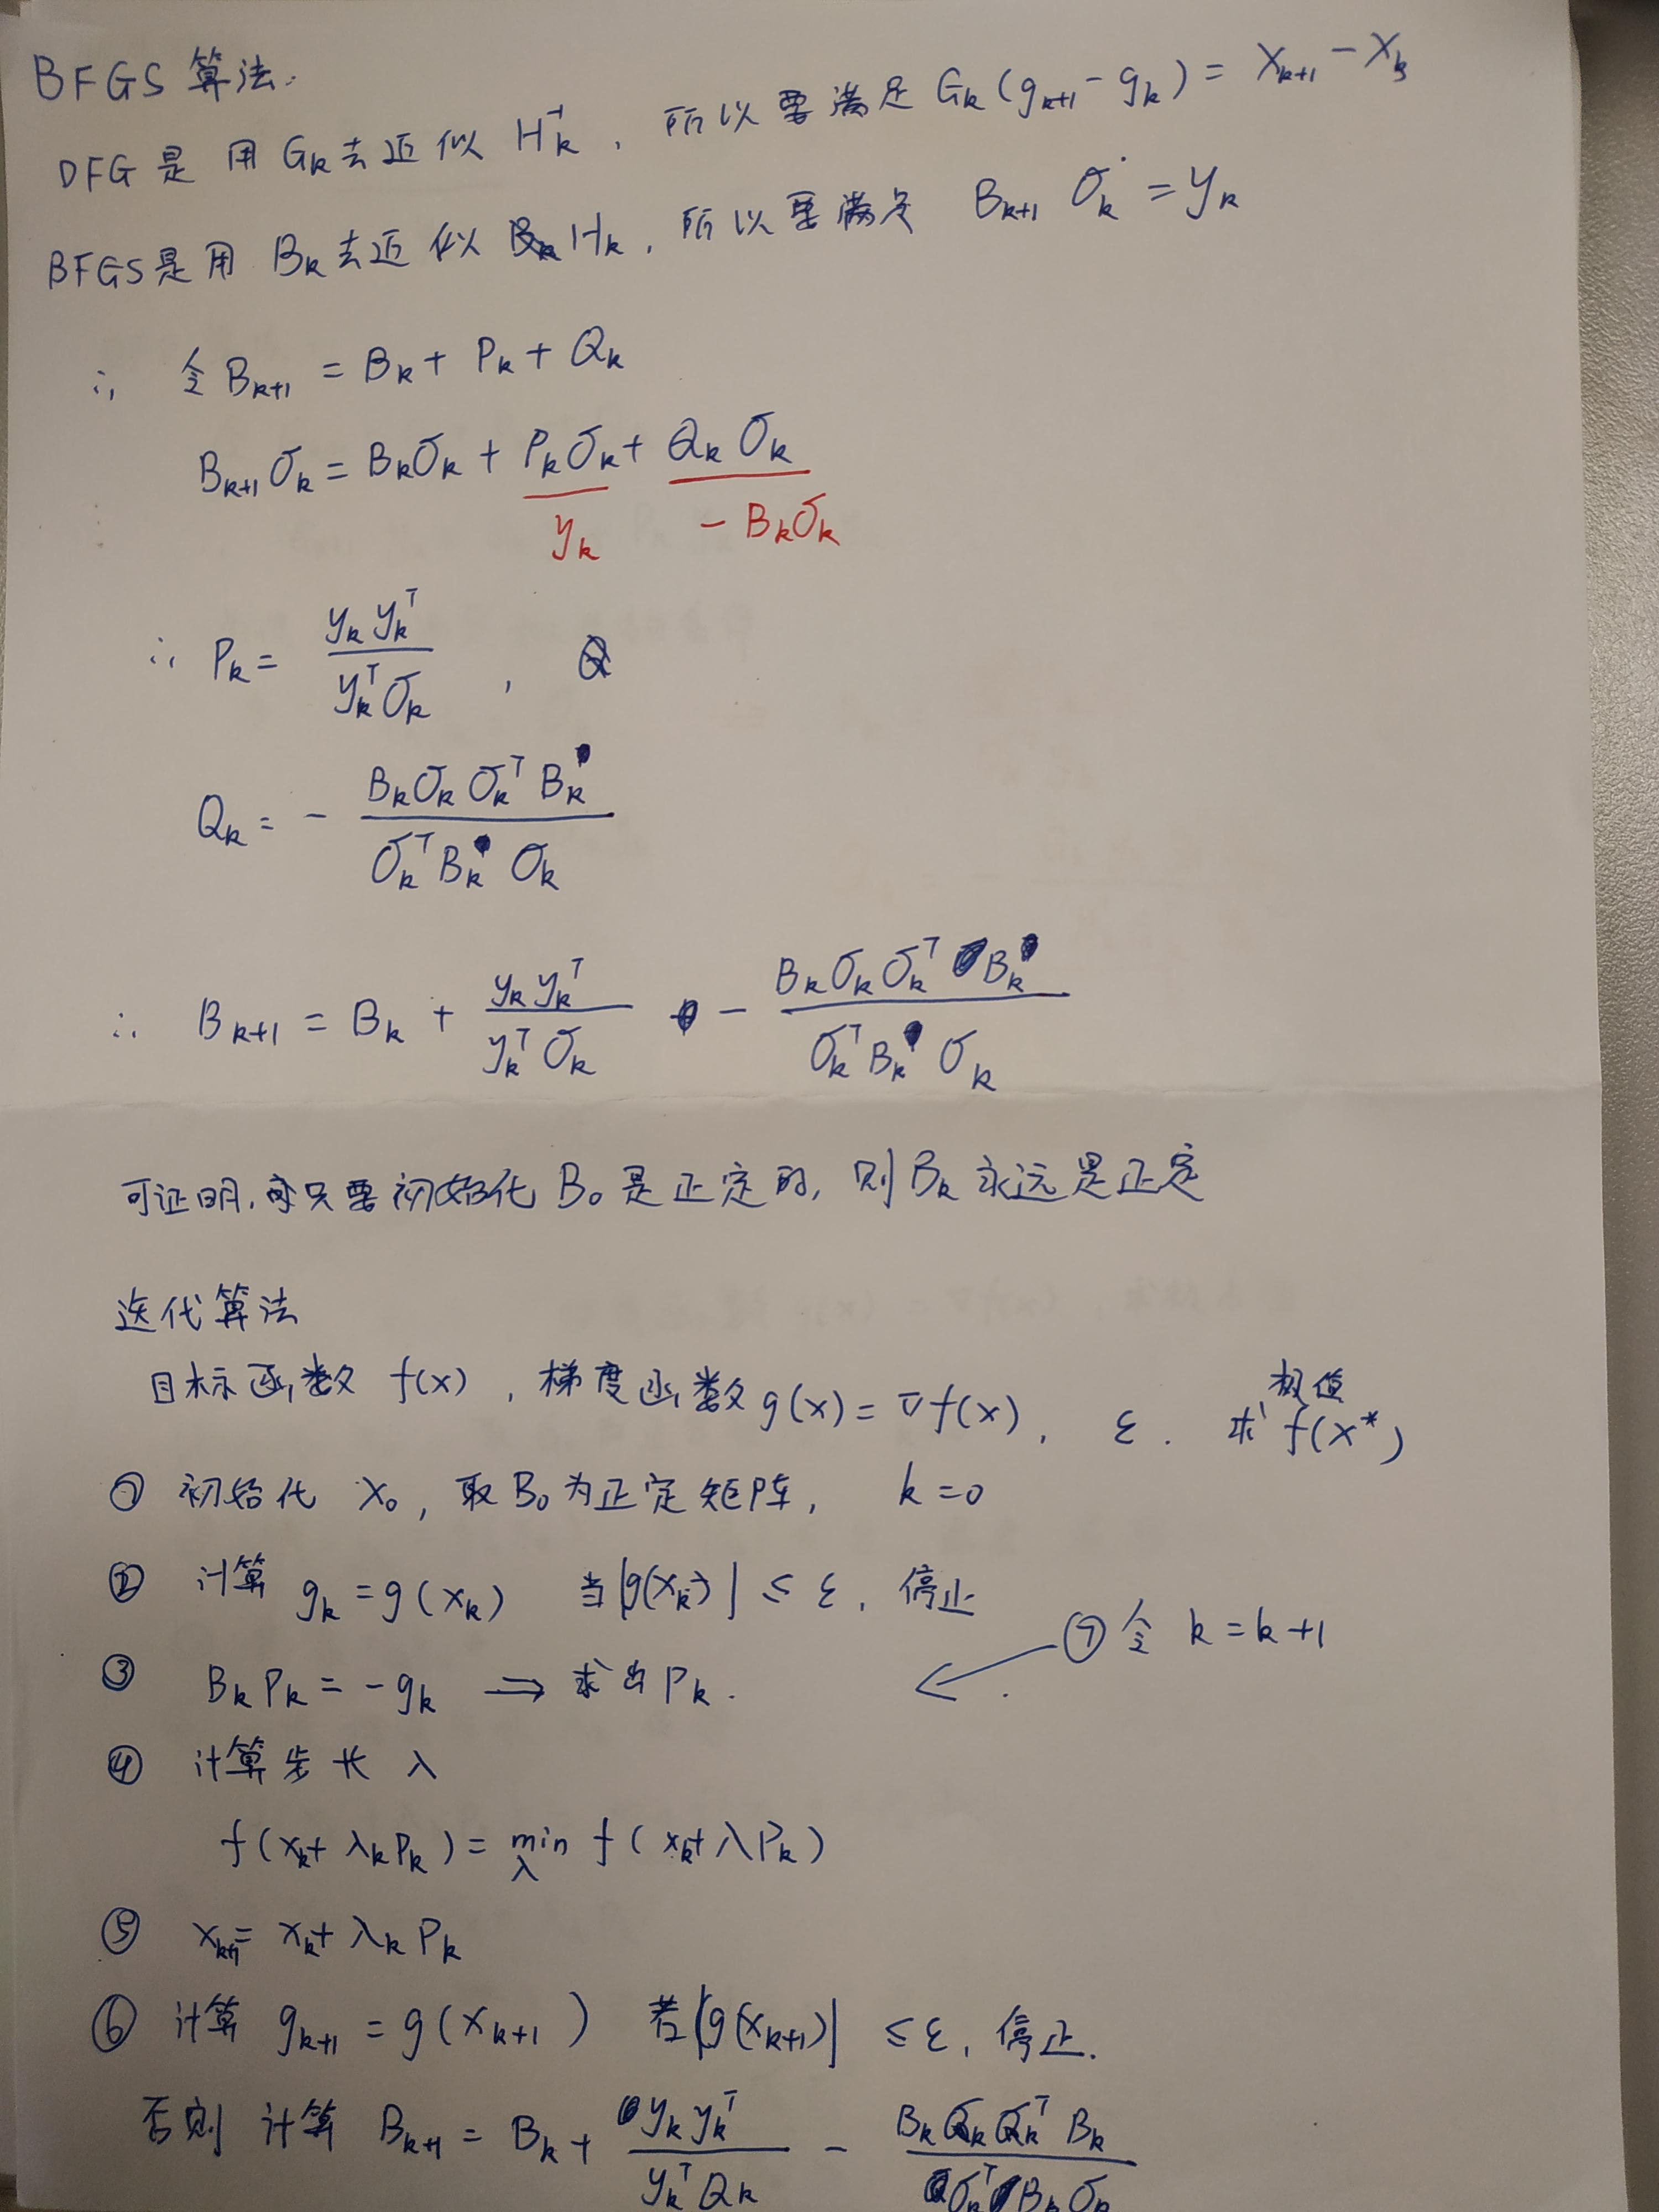 BFGS 算法.
DFG是 用 Gk去近似 Hk⁻¹, 所以要满足 Gk(gk+1 - gk) = Xk+1 - Xk
BFGS是用 Bk去近似 Hk, 所以要满足 Bk+1 σk = yk
∴ 令 Bk+1 = Bk + Pk + Qk
Bk+1 σk = Bkσk + Pkσk + Qkσk
yk - Bkσk
∴ Pk = yk ykᵀ / ykᵀσk ,
Qk = - Bkσkσkᵀ Bk / σkᵀ Bk σk
∴ Bk+1 = Bk + yk ykᵀ / ykᵀσk - Bkσkσkᵀ Bk / σkᵀ Bk σk
可证明, 只要初始化 B₀ 是正定的, 则 Bk 永远是正定
迭代算法
目标函数 f(x) , 梯度函数 g(x) = ∇f(x), ε. 求 f(x*) 极值
① 初始化 x₀, 取 B₀为正定矩阵, k=0
② 计算 gk = g(xk) 当|g(xk)| ≤ ε, 停止
⑦ 令 k = k+1
③ Bk Pk = -gk ⟹ 求出 Pk.
④ 计算步长 λ
f(xk+ λkPk) = min λ f(xk+ λPk)
⑤ xk+1 = xk+ λk Pk
⑥ 计算 gk+1 = g(xk+1) 若|g(xk+1)| ≤ε, 停止.
否则 计算 Bk+1 = Bk + yk ykᵀ / ykᵀ Qk - Bk σk σkᵀ Bk / σkᵀ Bk σk